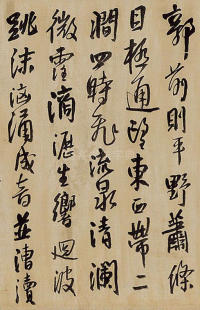 郭前則平野蕭條
目極通望東西帶二
澗四時飛流泉清瀾
微霪滴瀝生響迴波
跳沫洶涌成音並漕瀆